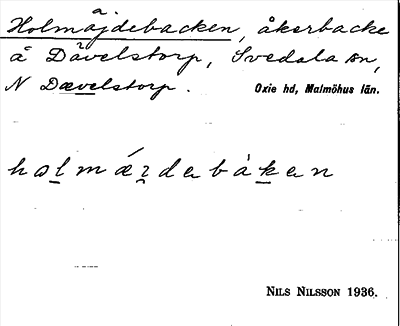 Holmajdebacken, åkerbacke
å Dävelstorp, Svedala sn,
N Dævelstorp. Oxie hd, Malmöhus län.
holmǽzdebàken
NILS NILSSON 1936.